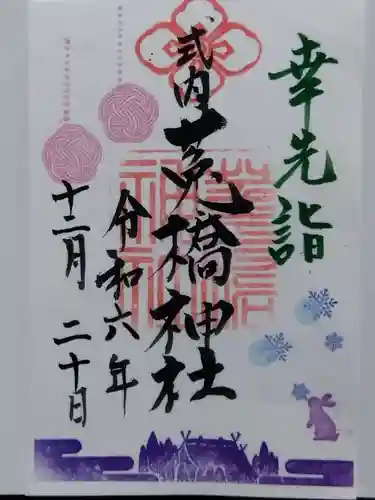 幸先詣
式内
菟橋神社
令和六年
十二月二十日